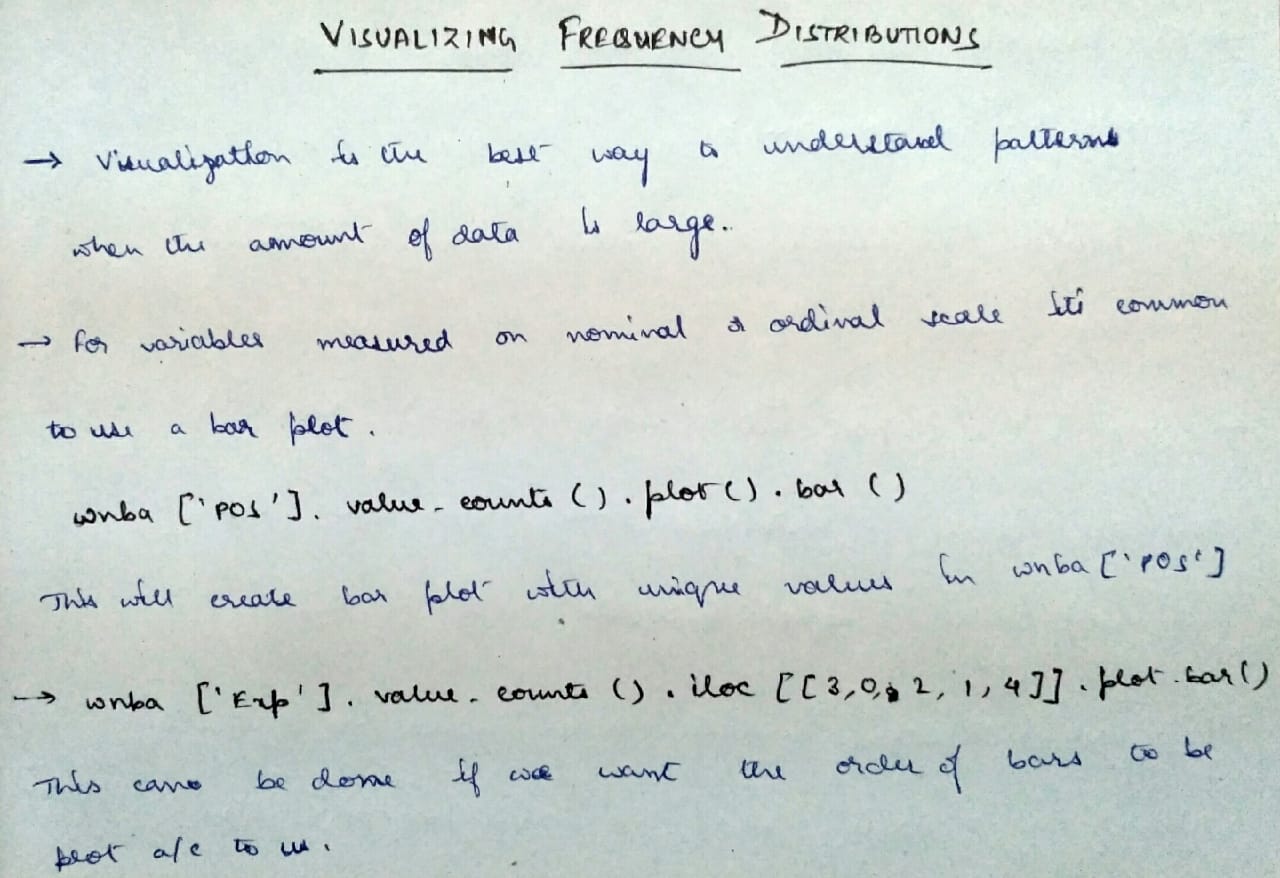 VISUALIZING FREQUENCY DISTRIBUTIONS
→ Visualization is the best way to understand patterns
when the amount of data is large.
→ For variables measured on nominal or ordinal scale it's common
to use a bar plot.
wnba ['POS']. value_counts () . plot() . bar ()
This will create bar plot with unique values in wnba ['POS']
→ wnba ['Exp']. value_counts () . iloc [[3,0,2,1,4]] . plot.bar()
This can be done if we want the order of bars to be
plot a/c to us.